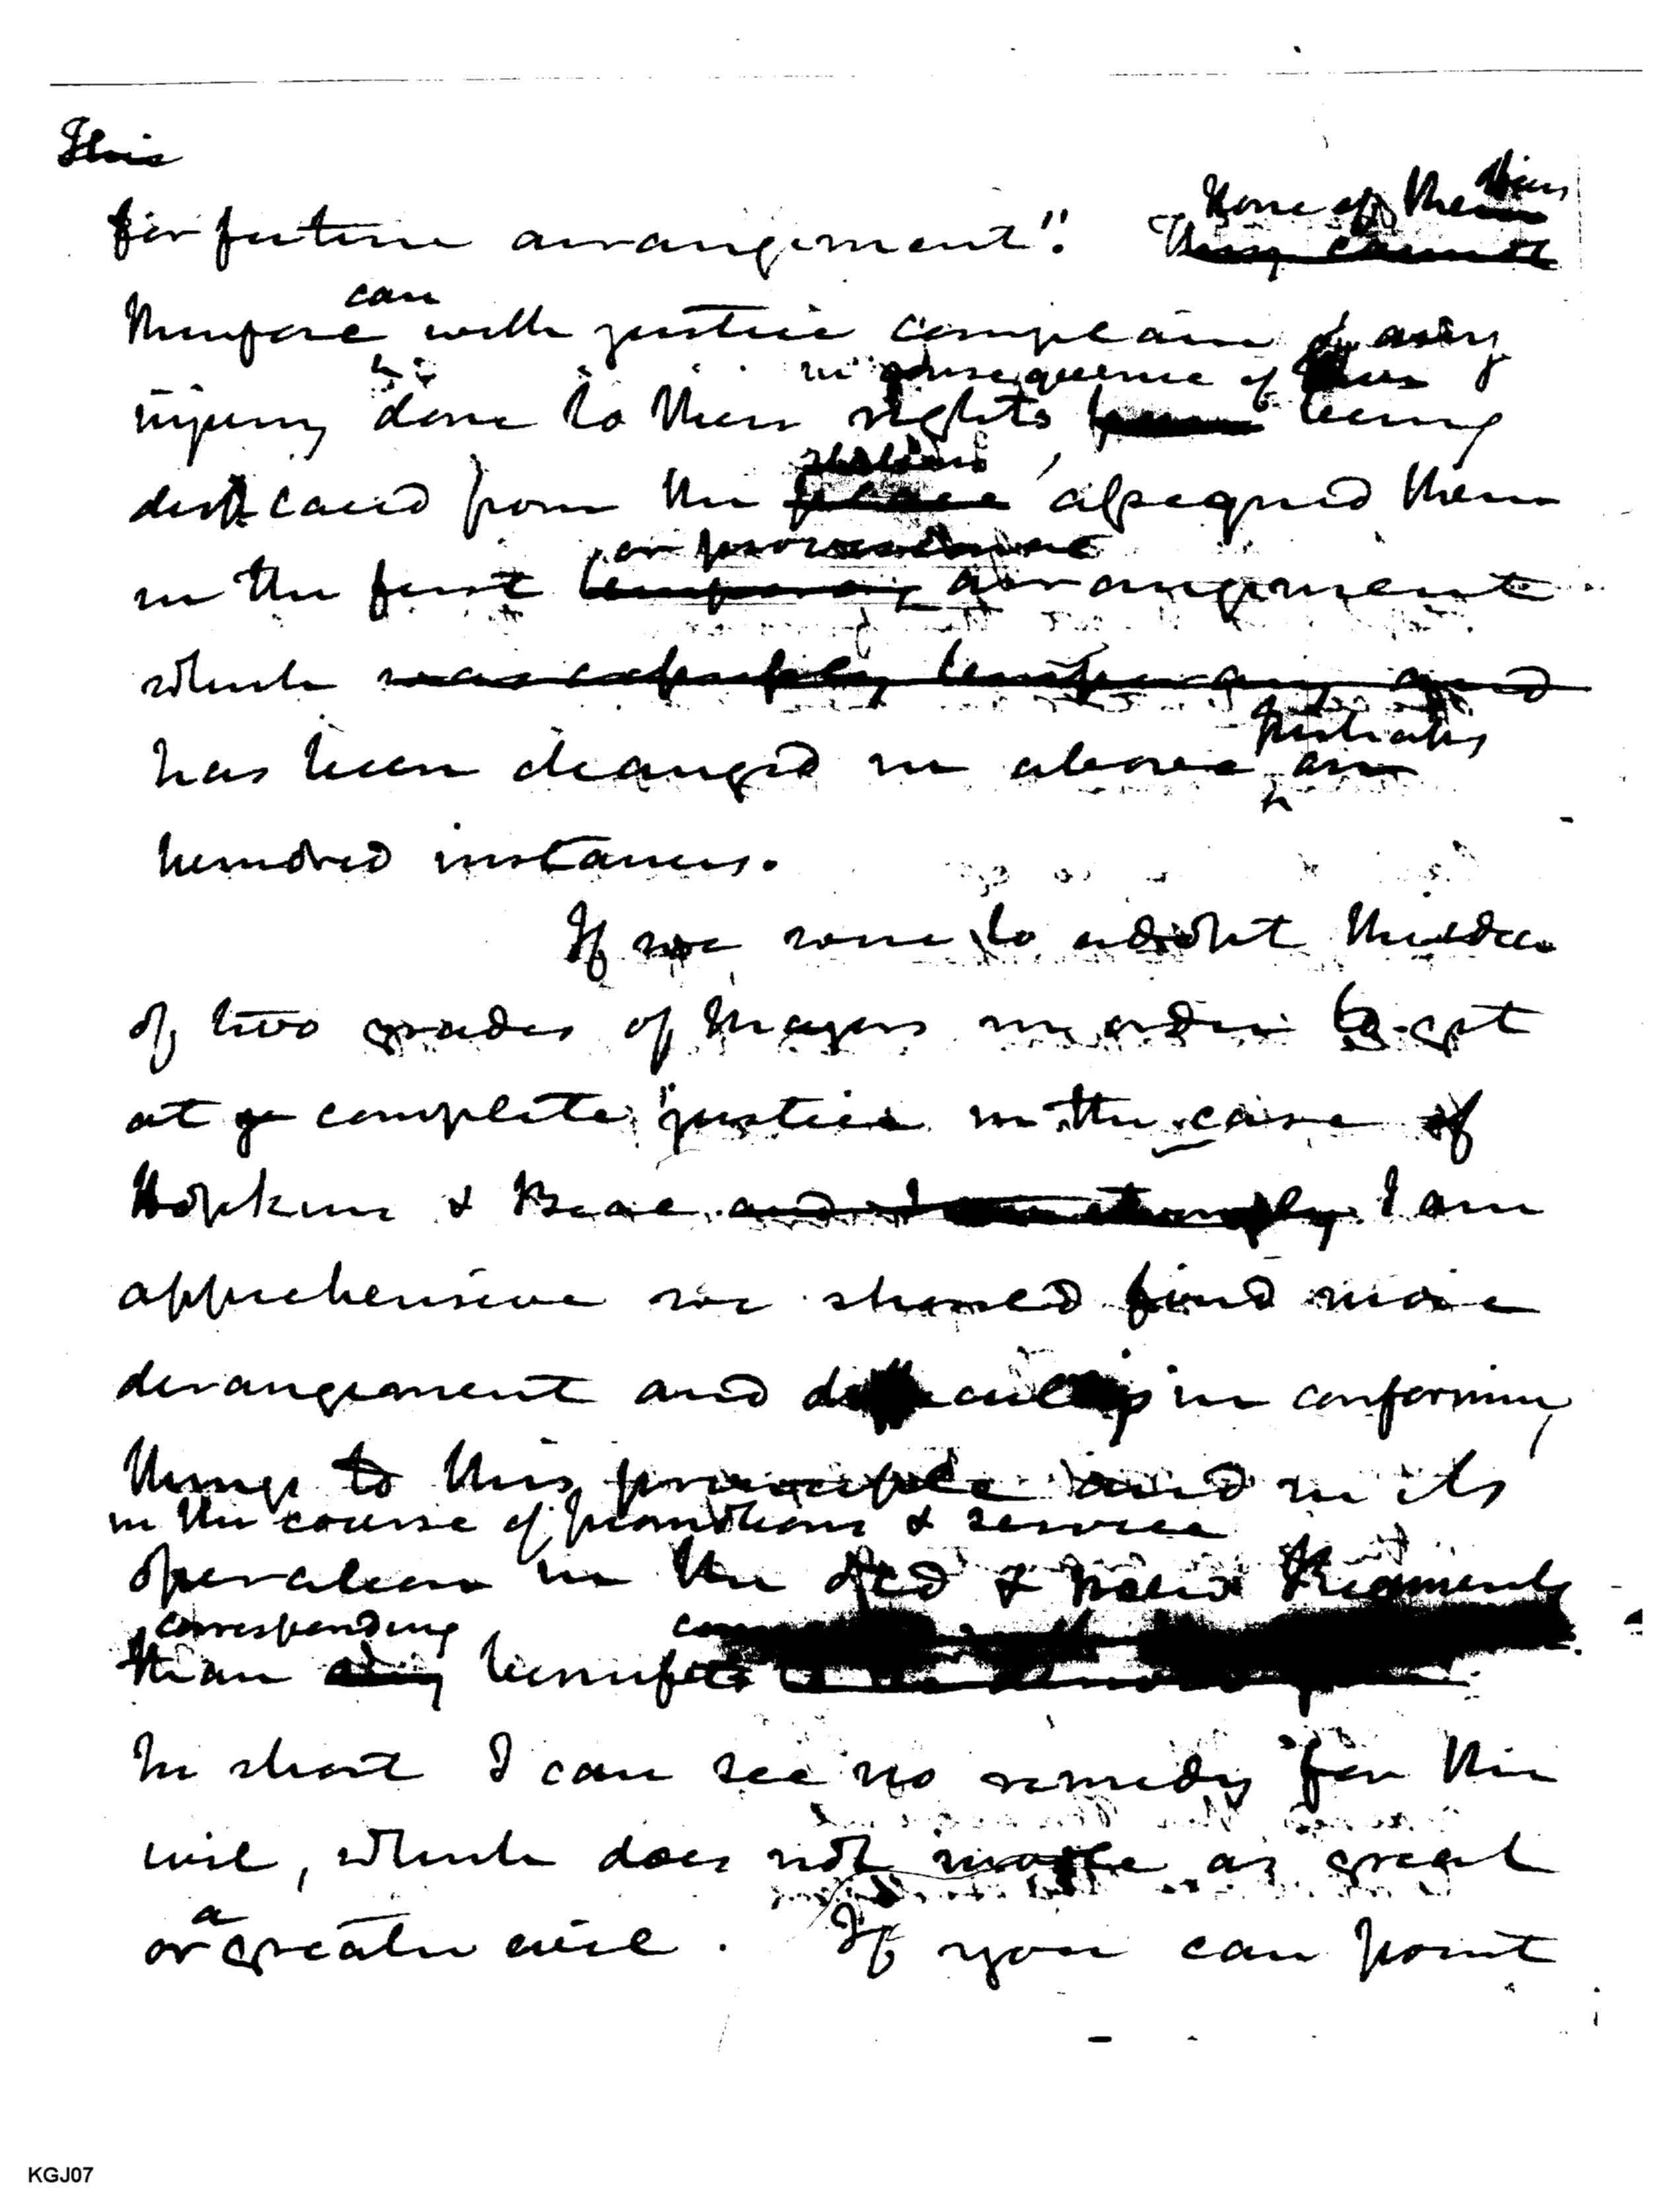 This
None of them
for future arrangement". They cannot
can
therefore with justice complain of any
in consequence of
injury done to their rights being
displaced from the place assigned them
stations
or
in the first temporary arrangement
which was expressly temporary and
has been changed in above an
hundred instances.
If we were to adopt the idea
of two grades of Majors in order to get
at complete justice in the case of
Hopkins & Beal and I am I am
apprehensive we should find more
derangement and difficulty in conforming
things to this principle and in its
in the course of promotions & service
operation in the old & new Regiments
corresponding
than any benefits
In short I can see no remedy for this
evil, which does not involve as great
a
or greater evil. If you can point
KGJ07